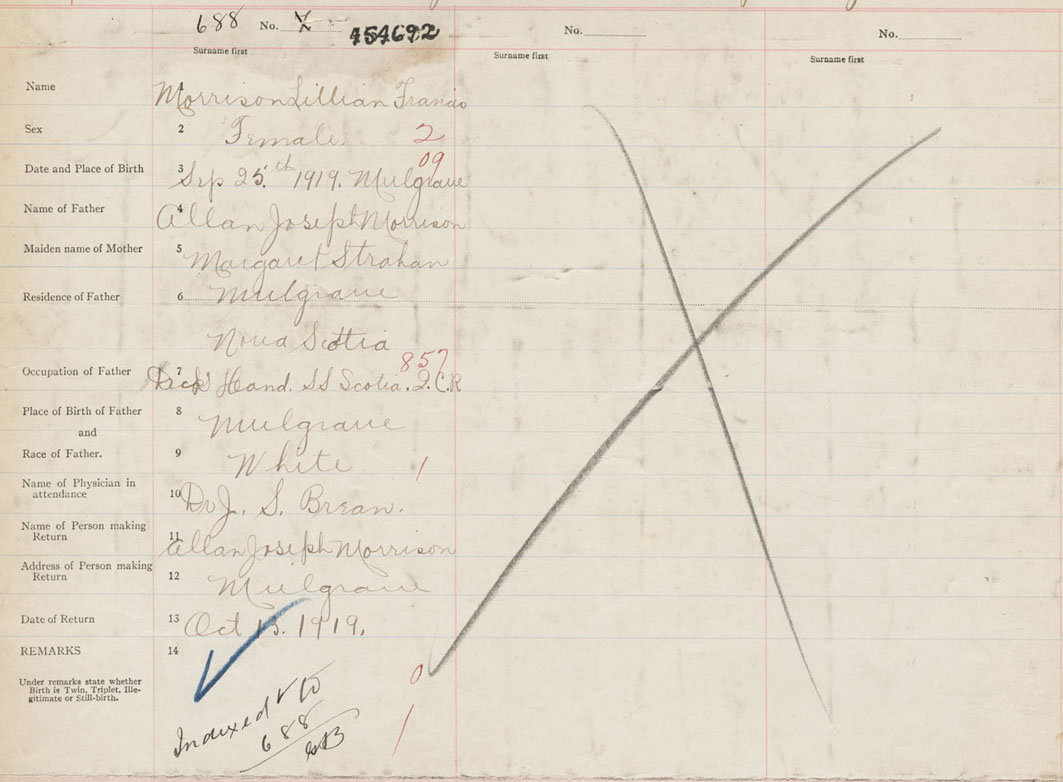 688 No. 454692 No. No.
Surname first Surname first Surname first
Name 1 Morrison Lillian Francis
Sex 2 Female 2
09
Date and Place of Birth 3 Sep 25th 1919. Mulgrave
Name of Father 4 Allan Joseph Morrison
Maiden name of Mother 5 Margaret Strahan
Residence of Father 6 Mulgrave
Nova Scotia
857
Occupation of Father 7 Deck Hand. SS Scotia. I.C.R
Place of Birth of Father 8 Mulgrave
and
Race of Father. 9 White 1
Name of Physician in
attendance 10 Dr J. S. Brean.
Name of Person making
Return 11 Allan Joseph Morrison
Address of Person making
Return 12 Mulgrave
Date of Return 13 Oct 13. 1919.
REMARKS 14
0
Under remarks state whether
Birth is Twin, Triplet, Ille-
gitimate or Still-birth.
Indexed to
688
1